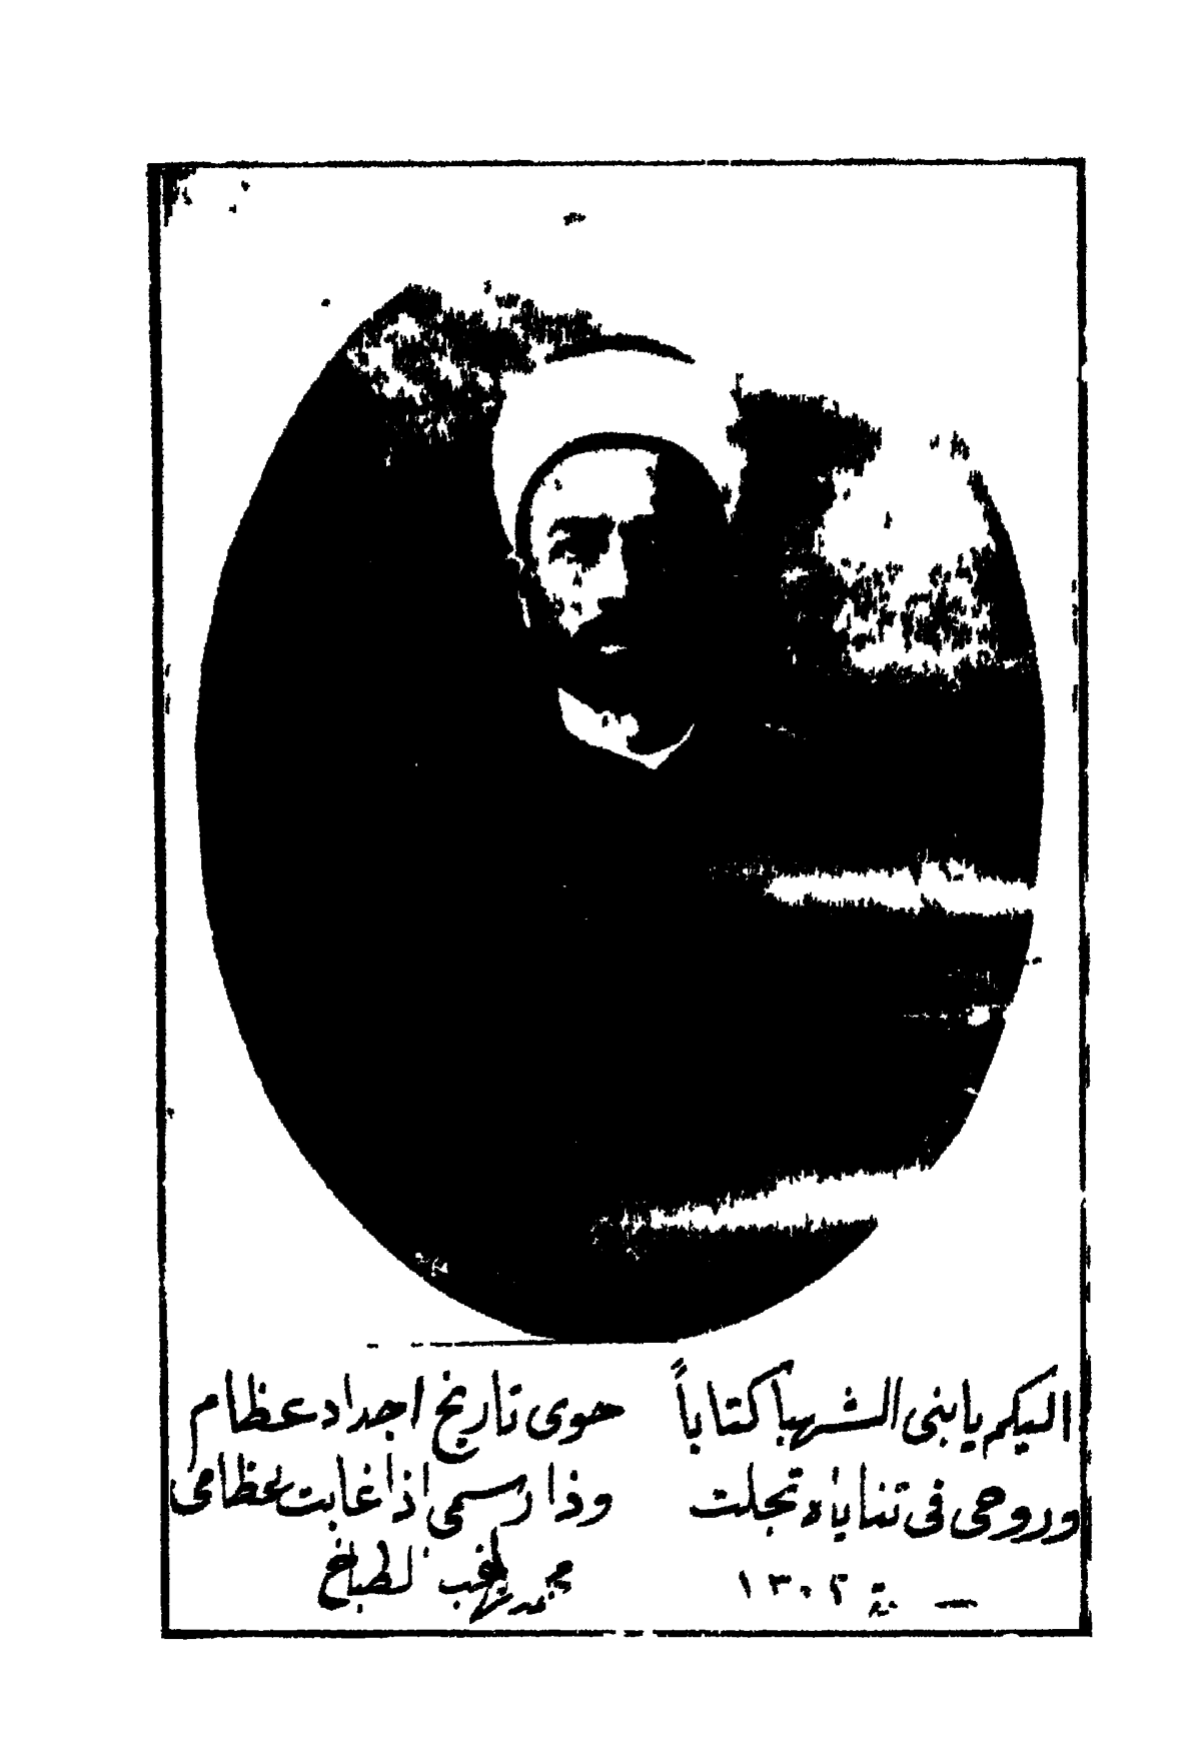 اليكم يا بنى الشهبا كتاباً حوى تاريخ اجداد عظام
وروحى فى تناياه تجلت وذا رسمى اذا غابت عظامى
سنة ١٣٠٢ محمد راغب الطباخ